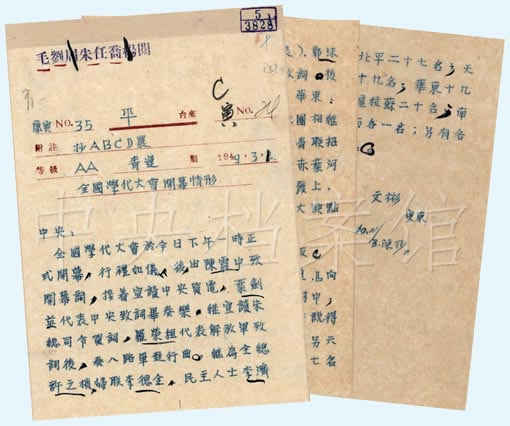 毛劉周朱任喬楊
5
3828
C
NO.35 平 台來 寅 NO.24
附注 抄ABCD農
等級 AA 青運 類 1949.3.1.
全國學代大會開幕情形
中央:
全國學代大會於今日下午一時正
式開幕,行禮如儀,後由陳震中致
開幕詞,接着宣讀中央賀電,葉劍
並代表中央致詞畢奏樂,繼宣讀朱
總司令賀詞,羅榮桓代表解放軍致
詞後,奏八路軍進行曲。繼為全總
許之楨婦聯李德全,民主人士李濟
是),郭沫
致詞。後
華東:
國相繼
青聯招
赤葉河
上,
點
向
中,
說得
另六
七名
北平二十七名,天
十九名,華東十九
滬杭蘇二十名,南
各一名,另有各
文彬
冀東
中央档案馆